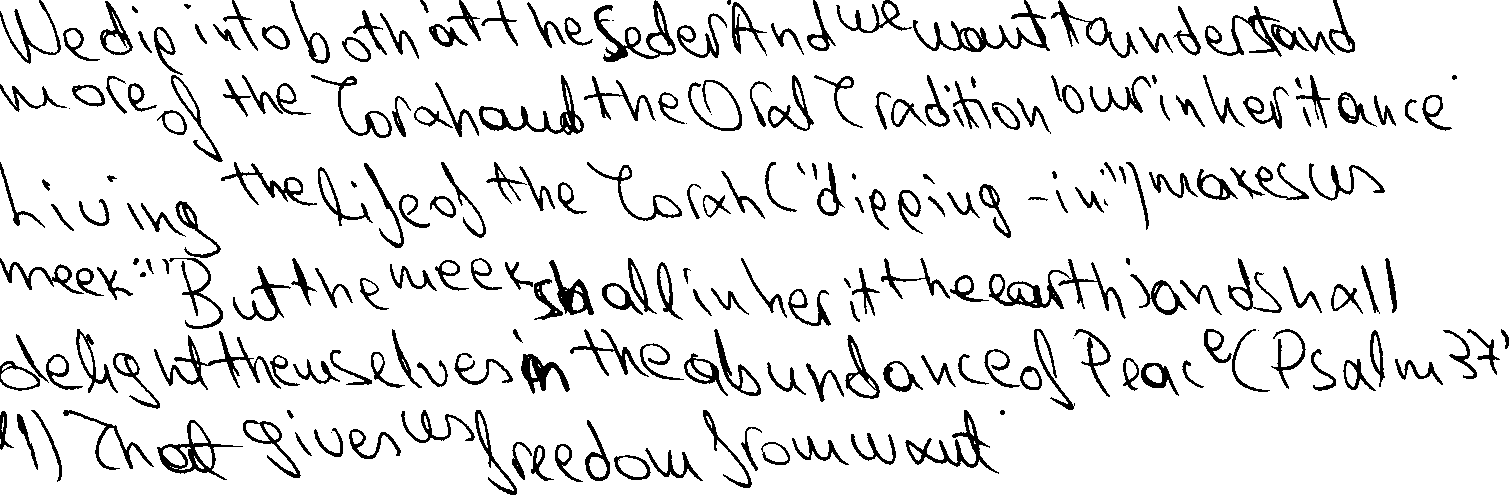 We dip into both at the Seder. And we want to understand
more of the Torah and the Oral Tradition, our inheritance.
Living the life of the Torah ("dipping-in") makes us
meek: "But the meek shall inherit the earth; and shall
delight themselves in the abundance of Peace (Psalm 37,
11) That gives us freedom from want.